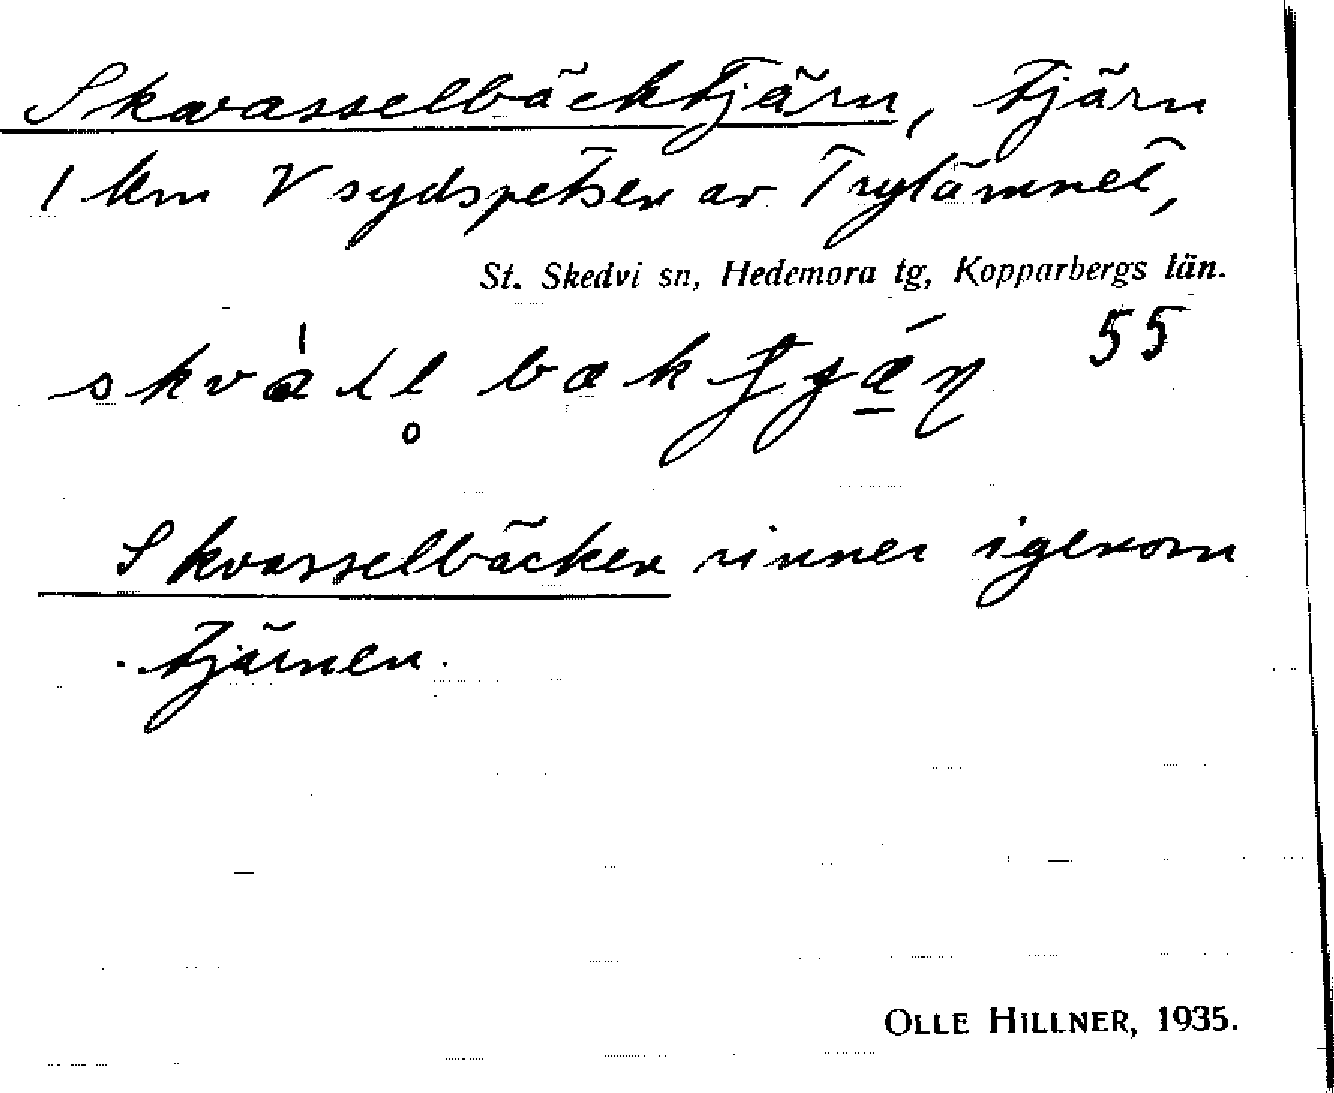 Skvasselbäcktjärn, tjärn
1 km V sydspetsen av Trytämnet,
St. Skedvi sn, Hedemora tg, Kopparbergs län.
55
Skvasselbäcken rinner igenom
tjärnen.
OLLE HILLNER, 1935.